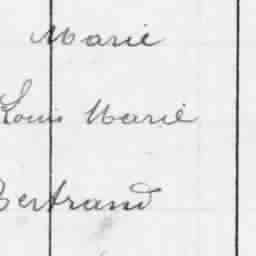 Marie
Louis Marie
Bertrand